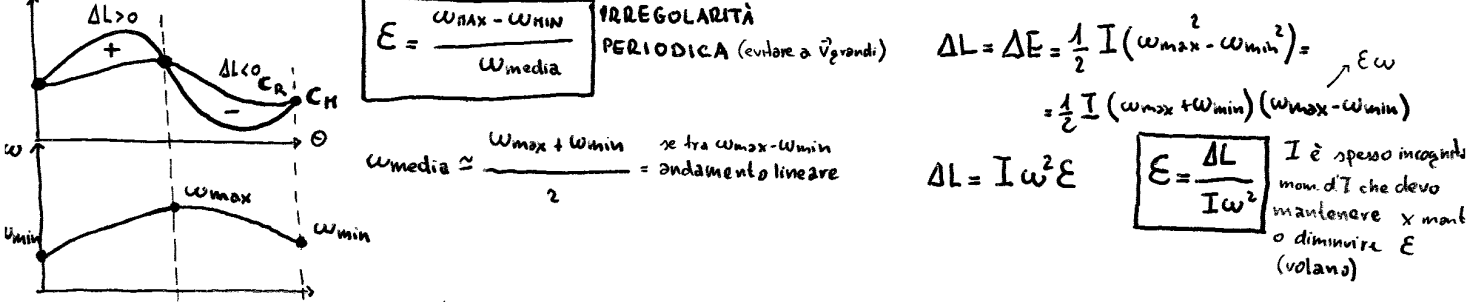 ΔL>0
+
ΔL<0
C_R
C_M
-
θ
ω
ω_max
ω_min
ω_min
ε = (ω_MAX - ω_MIN) / ω_media
IRREGOLARITÀ
PERIODICA (evitare a v⃗ grandi)
ω_media ≃ (ω_max + ω_min) / 2 = se tra ω_max - ω_min
andamento lineare
ΔL = ΔE = 1/2 I (ω_max² - ω_min²) =
εω
= 1/2 I (ω_max + ω_min) (ω_max - ω_min)
ΔL = I ω² ε
ε = ΔL / Iω²
I è spesso incognita
mom. d'I che devo
mantenere x mant
o diminuire ε
(volano)